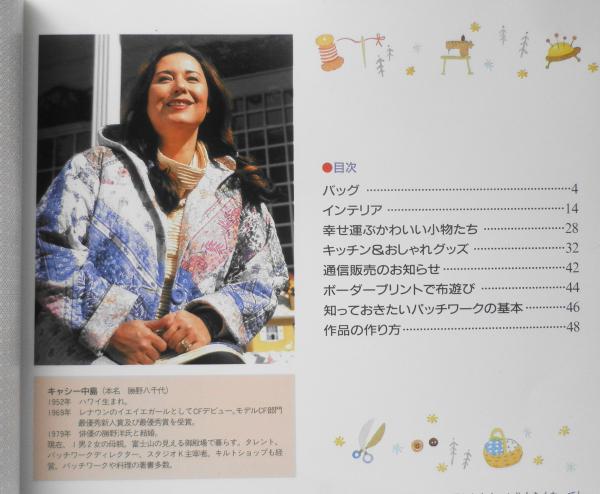 キャシー中島（本名　勝野八千代）
1952年　ハワイ生まれ。
1969年　レナウンのイエイエガールとしてCFデビュー。モデルCF部門
最優秀新人賞及び最優秀賞を受賞。
1979年　俳優の勝野洋氏と結婚。
現在、1男2女の母親。富士山の見える御殿場で暮らす。タレント、
パッチワークディレクター、スタジオK主宰者。キルトショップも経
営。パッチワークや料理の著書多数。
●目次
バッグ ……………………………………4
インテリア ………………………………14
幸せ運ぶかわいい小物たち ……………28
キッチン&おしゃれグッズ ……………32
通信販売のお知らせ ……………………42
ボーダープリントで布遊び ……………44
知っておきたいパッチワークの基本 ……46
作品の作り方 ……………………………48